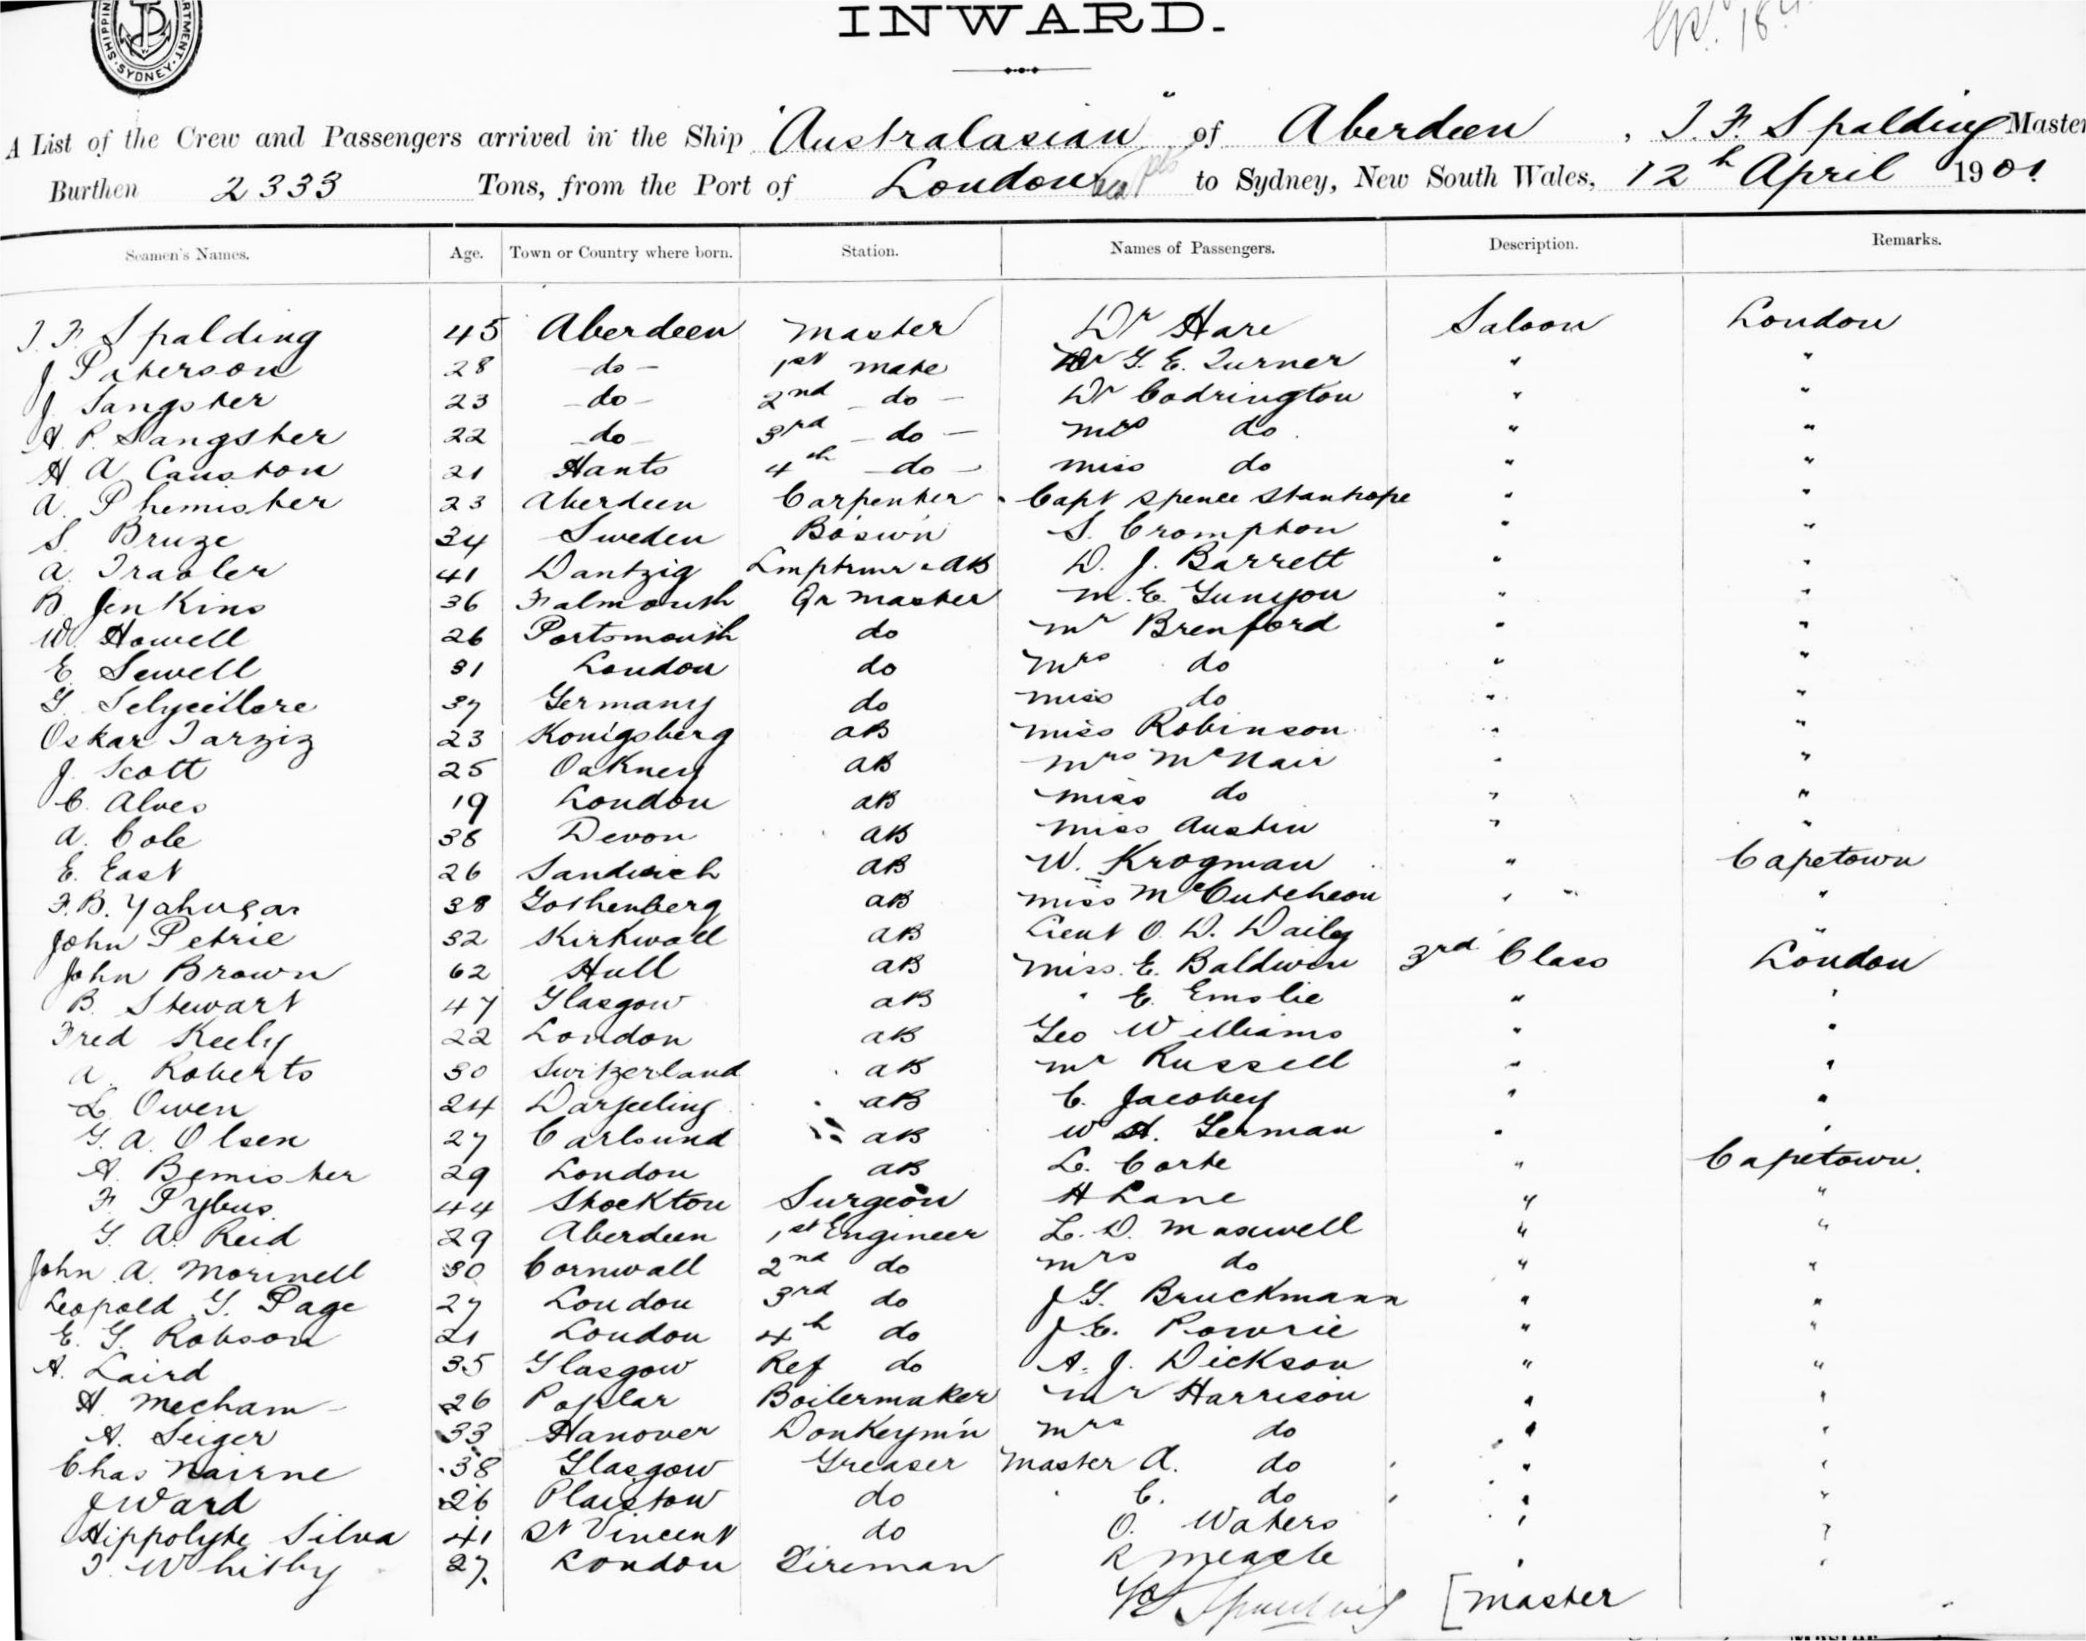 SHIPPING DEPARTMENT. SYDNEY.
INWARD.
A List of the Crew and Passengers arrived in the Ship "Australasian" of Aberdeen, J. F. Spalding Master
Burthen 2333 Tons, from the Port of London to Sydney, New South Wales, 12th April 1901.
Seamen's Names. Age. Town or Country where born. Station. Names of Passengers. Description. Remarks.
J. F. Spalding 45 Aberdeen Master Dr Hare Saloon London
J Paterson 28 -do- 1st Mate Dr G. E. Turner " "
J. Sangster 23 -do- 2nd -do- Dr Codrington " "
A. P. Sangster 22 -do- 3rd -do- Mrs do " "
H A Causton 21 Hants 4th -do- Miss do " "
A. Phemister 23 Aberdeen Carpenter Capt Spence Stanhope " "
S. Bruze 34 Sweden Bosw'n S. Crompton " "
A. 41 Dantzig Lmptrmr & AB D. J. Barrett " "
B Jenkins 36 Falmouth Qr Master M. E. Gunyou " "
W. Howell 26 Portsmouth do Mr Brenford " "
E. Sewell 31 London do Mrs do " "
G. 37 Germany do Miss do " "
Oskar Tarziz 23 Konigsberg AB Miss Robinson " "
J. Scott 25 Oakney AB Mrs McNair " "
C. Alves 19 London AB Miss do " "
A. Cole 38 Devon AB Miss Austin " "
E. East 26 Sandwich AB W. Krogman " Capetown
F. B. 38 Gothenberg AB Miss McCutcheon " "
John Petrie 32 Kirkwall AB Lieut O. D. Daily "
John Brown 62 Hull AB Miss. E. Baldwin 3rd Class London
B. Stewart 47 Glasgow AB " E. Emslie " "
Fred Keely 22 London AB Geo Williams " "
A. Roberts 30 Switzerland AB Mr Russell " "
L. Owen 24 Darjeeling AB C. Jacobey " "
G. A. Olsen 27 Carlsund AB W H. German " "
A. Bemister 29 London AB L. Corte " Capetown.
F. Pybus 44 Stockton Surgeon H Lane " "
G. A. Reid 29 Aberdeen 1st Engineer L. D. Maxwell " "
John A. Morinell 30 Cornwall 2nd do Mrs do " "
Leopold G. Page 27 London 3rd do J G. Bruckmann " "
E. G. Robson 21 London 4th do J. E. Powrie " "
A. Laird 35 Glasgow Ref do A. J. Dickson " "
H. Mecham 26 Poplar Boilermaker Mr Harrison " "
A. Seiger 33 Hanover Donkeym'n Mrs do " "
Chas Nairne 38 Glasgow Greaser Master A. do " "
J Ward 26 Plaistow do " C. do " "
Hippolyte Silva 41 St Vincent do O. Waters " "
T. Whitby 27. London Fireman R " "
[Master